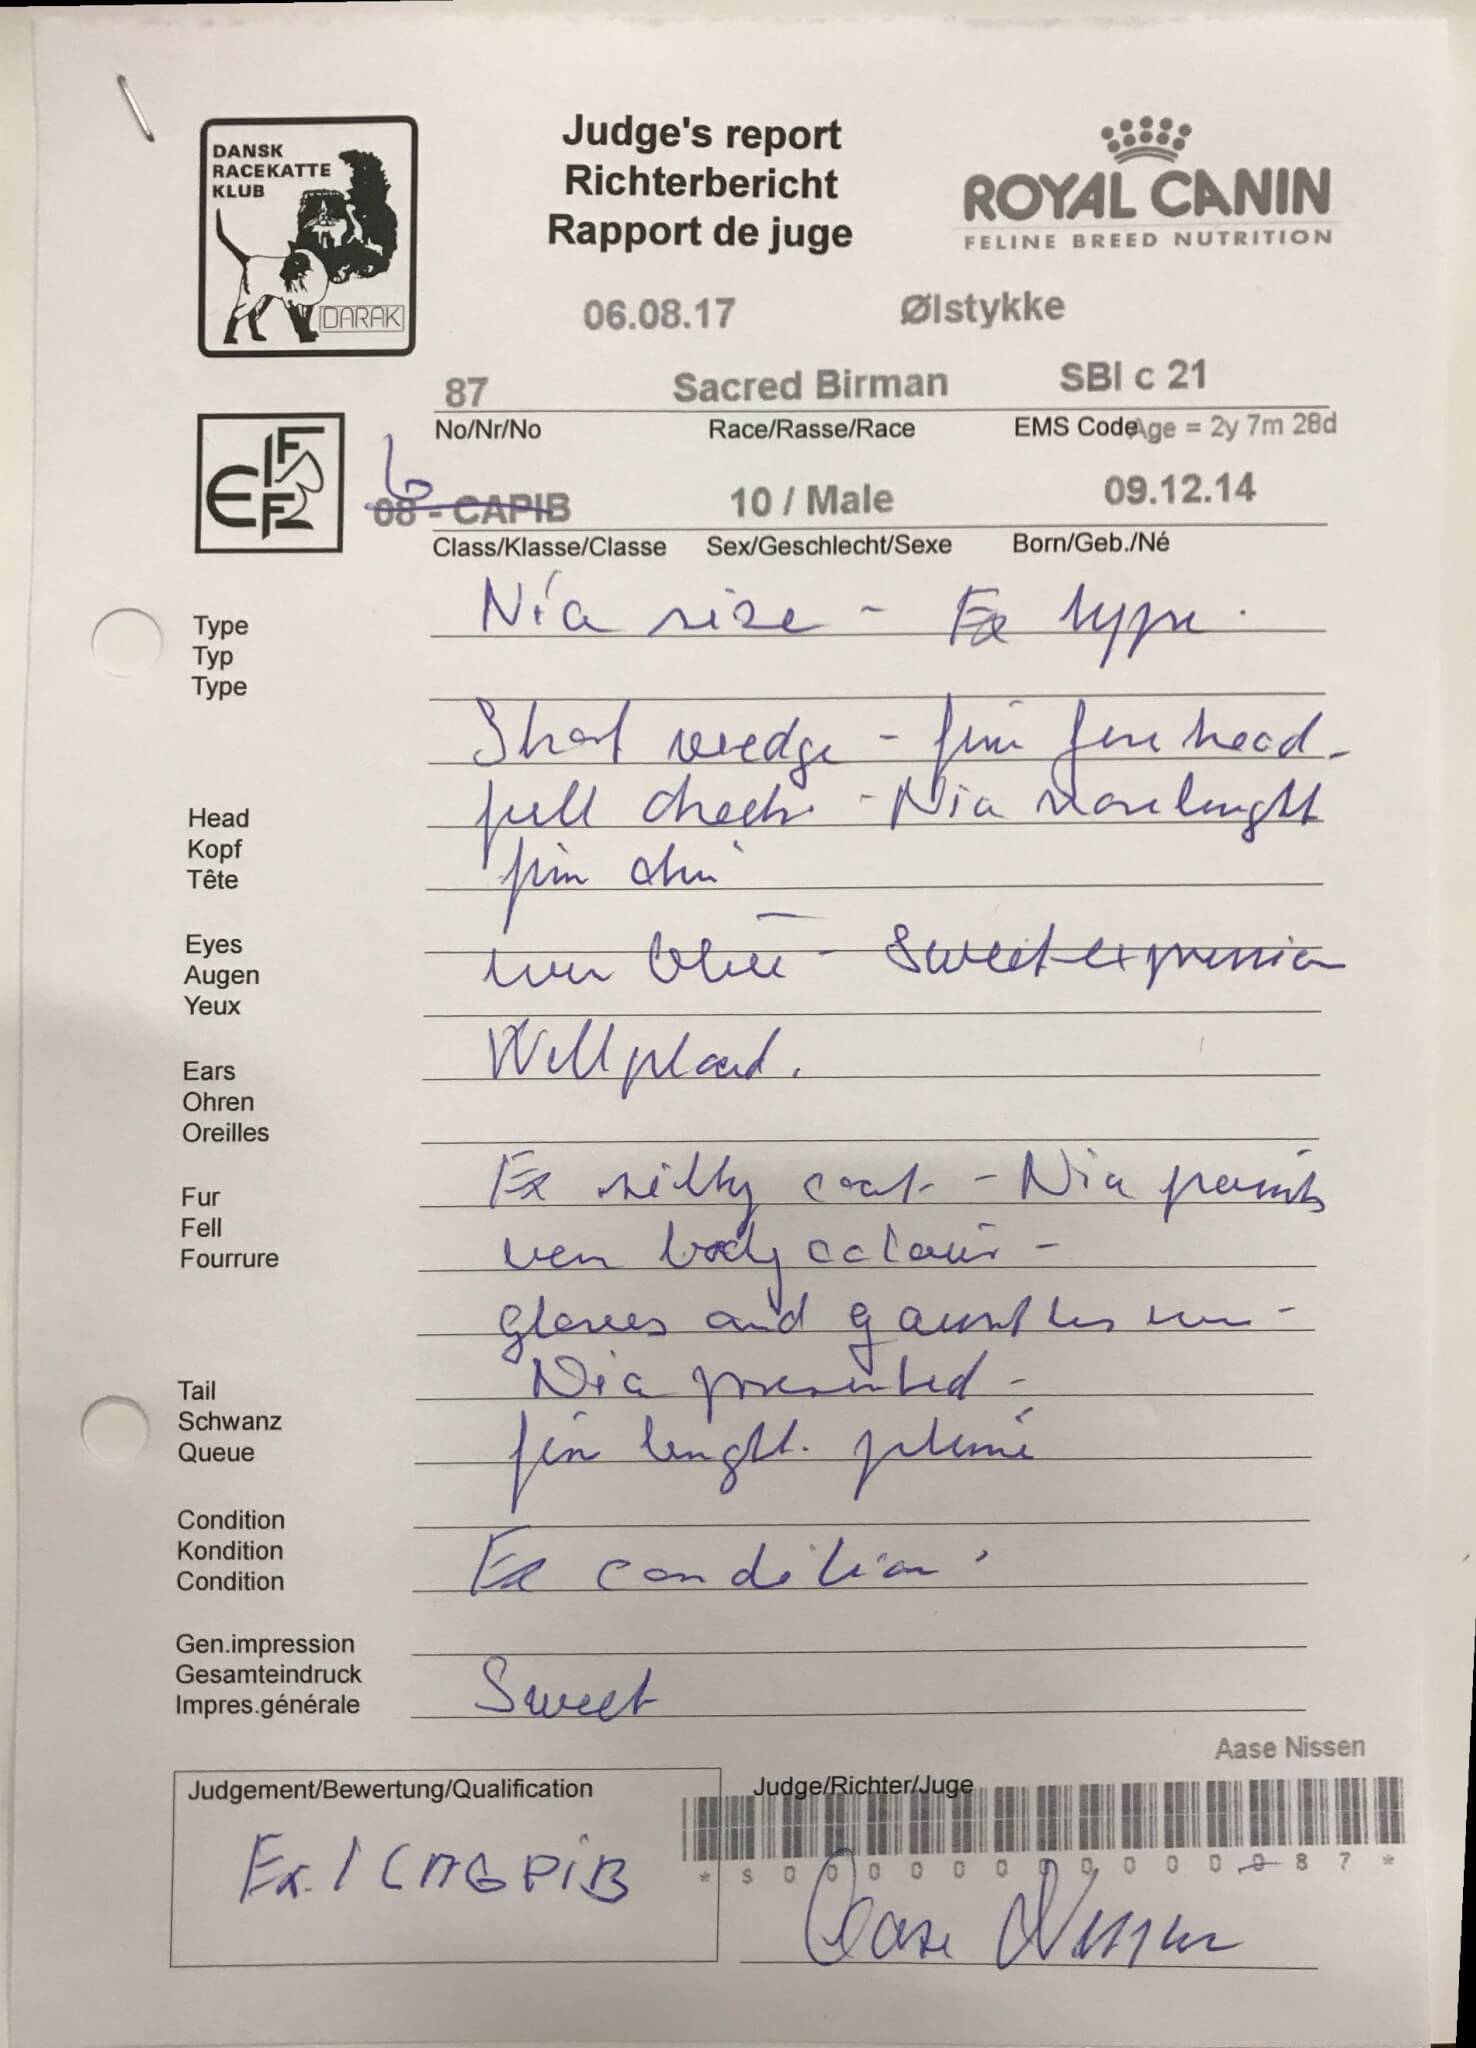 DANSK
RACEKATTE
KLUB
DARAK
Judge's report
Richterbericht
Rapport de juge
ROYAL CANIN
FELINE BREED NUTRITION
06.08.17 Ølstykke
87 Sacred Birman SBI c 21
No/Nr/No Race/Rasse/Race EMS Code Age = 2y 7m 28d
FIFe
6
08 - CAPIB 10 / Male 09.12.14
Class/Klasse/Classe Sex/Geschlecht/Sexe Born/Geb./Né
Type Nia size - Ex type.
Typ
Type
Short wedge - fin forehead -
Head full cheeks - Nia nose lenght
Kopf
Tête fin chin
Eyes blue - Sweet expression
Augen
Yeux
Ears Well placed.
Ohren
Oreilles
Fur Ex silky coat - Nia points
Fell
Fourrure body colour -
gloves and
Tail Nia presented -
Schwanz
Queue fin lenght. plume
Condition
Kondition Ex condition
Condition
Gen.impression
Gesamteindruck
Impres.générale Sweet
Aase Nissen
Judgement/Bewertung/Qualification Judge/Richter/Juge
Ex. 1 CAGPIB
* S 0 0 0 0 0 0 0 0 0 0 0 0 8 7 *
Aase Nissen